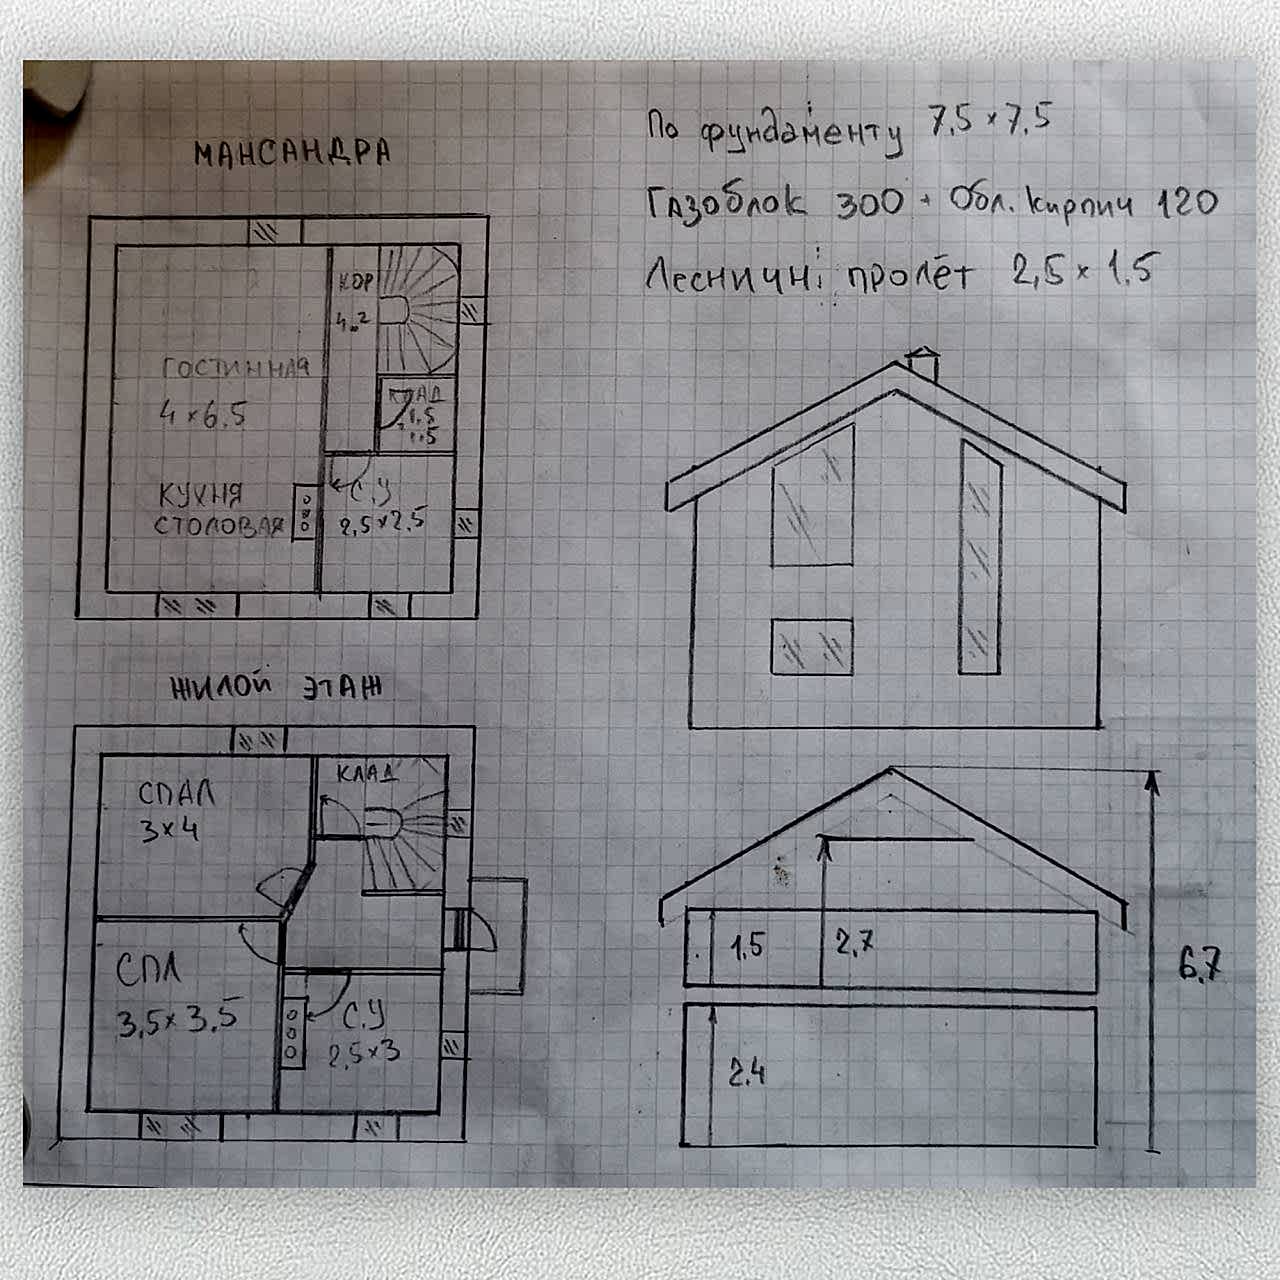 МАНСАНДРА
По фундаменту 7,5×7,5
Газоблок 300 + Обл. Кирпич 120
Лесничні пролёт 2,5×1,5
КОР
4м2
ГОСТИННАЯ
4×6.5
КЛАД
1.5
1.5
КУХНЯ
СТОЛОВАЯ
С.У
2,5×2.5
ЖИЛОЙ ЭТАЖ
СПАЛ
3×4
КЛАД
СПЛ
3,5×3.5
С.У
2,5×3
1.5
2.7
6.7
2.4